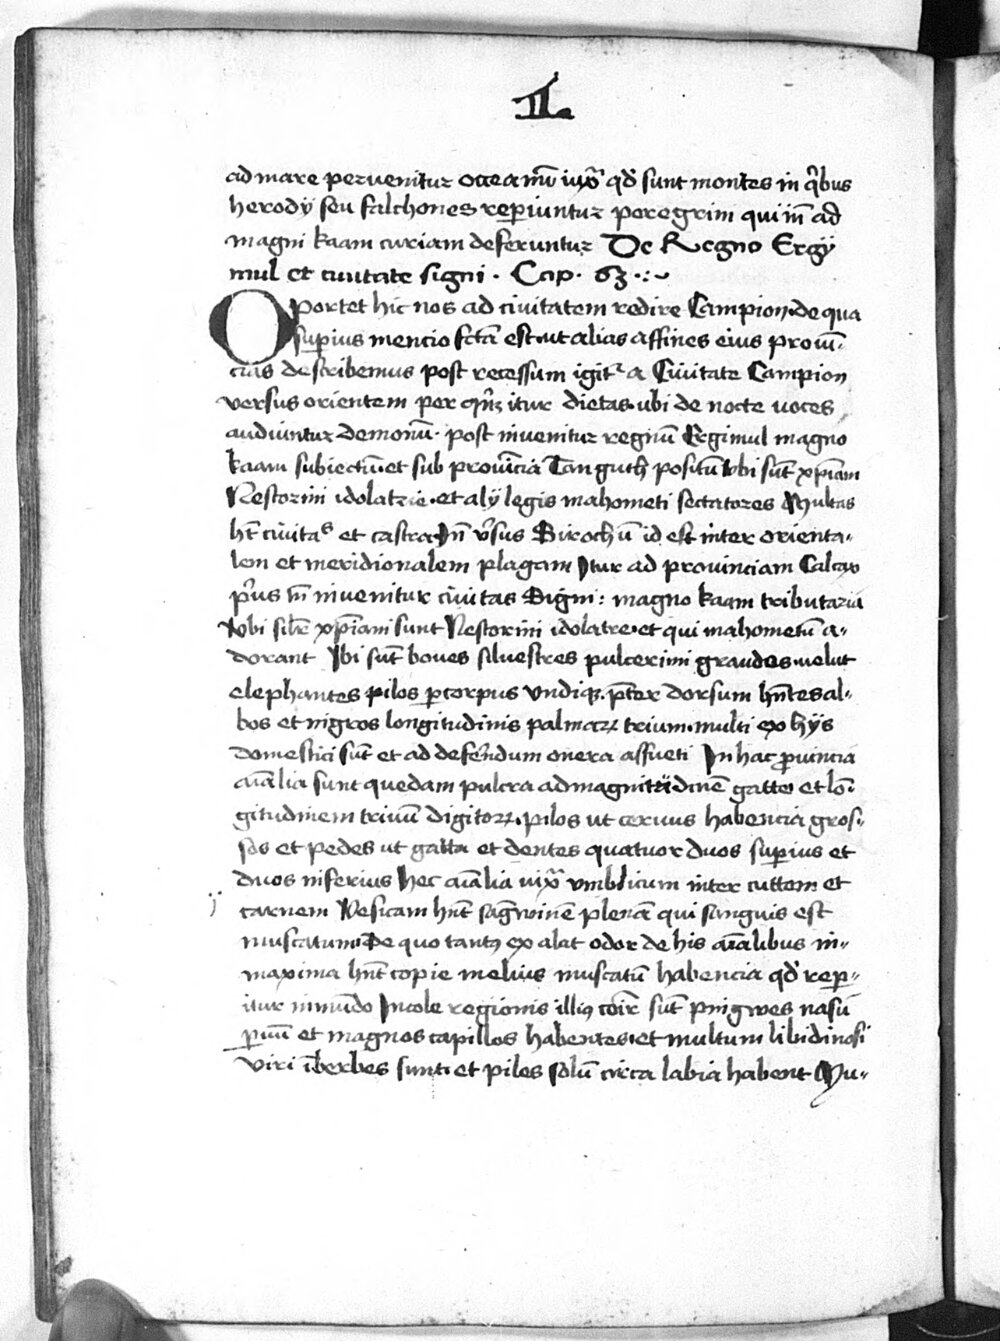 II
ad mare pervenitur occeanū iuxᵃ qd̕ sunt montes in qⁱbus
herodij seu falchones reperiuntur peregrini qui iñ ad
magni kaam curiam deferuntur De Regno Ergij
mul et civitate signi . Cap . 63 .
Oportet hic nos ad civitatem redire Campion de qua
superius mencio fctā est ut alias affines eius provin̄-
cias describemus post recessum igitᵉ a Civitate Campion
versus orientem per itur dietas ubi de nocte voces
audiuntur demonū . post invenitur regnū Ergimul magno
kaam subiectū et sub provīcia Tanguth positū Ubi sūt xp̄iani
Nestorini idolatrie . et alij legis mahometi sectatores Multas
hn̄t civitaˢ et castra In̄ v̄sus Sirochū id est inter orienta-
lem et meridionalem plagam Itur ad provinciam
pⁱus in̄ invenitur civitas Signi : magno kaam tributaria
Ubi sil̄r xp̄iani sunt Nestorini idolatre et qui mahometū a-
dorant Ibi sūt boves silvestres pulcerimi grandes velut
elephantes pilos per corpus undiqz . pᵗer dorsum hn̄tes al-
bos et nigros longitudinis palmarꝝ trium . multi ex hijs
domestici sūt et ad deferendum onera assueti In hac provincia
aīalia sunt quedam pulcra ad magnitudinē gatte et lō-
gitudinem triuū digitorꝝ . pilos ut cervus habencia gros-
sos et pedes ut gatta et dentes quatuor duos superius et
duos inferius Hec aīalia iuxᵃ umblicum inter cuttem et
carnem Vesicam hn̄t sagwinē plenā qui sanguis est
muscatum De quo tantꝰ exalat odor de his aīalibus in-
maxima hn̄t copie melius muscatū habencia qd̕ reper-
itur in mūdo Incole regionis illiꝰ sūt pingwes nasū
pvuū et magnos capillos habentes et multum libidinosi
viri īberbes sunt et piles solū circa labia habent Mu-